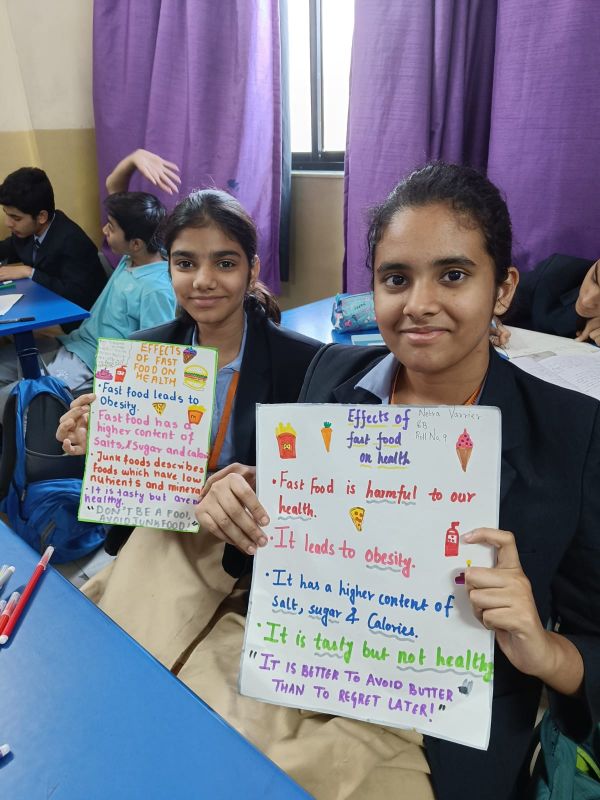 EFFECTS
OF FAST
FOOD ON
HEALTH
• Fast food leads to
Obesity.
Fast food has a
higher content of
Salts, Sugar and calorie
• Junk foods describes
foods which have low
nutrients and mineral
• It is tasty but
healthy.
"DON'T BE A FOOL,
AVOID JUNK FOOD!"
Effects of
fast food
on health
Netra Varrier
6B
Roll No. 9
• Fast Food is harmful to our
health.
• It leads to obesity.
• It has a higher content of
salt, sugar & Calories.
• It is tasty but not healthy
"IT IS BETTER TO AVOID BUTTER
THAN TO REGRET LATER!"